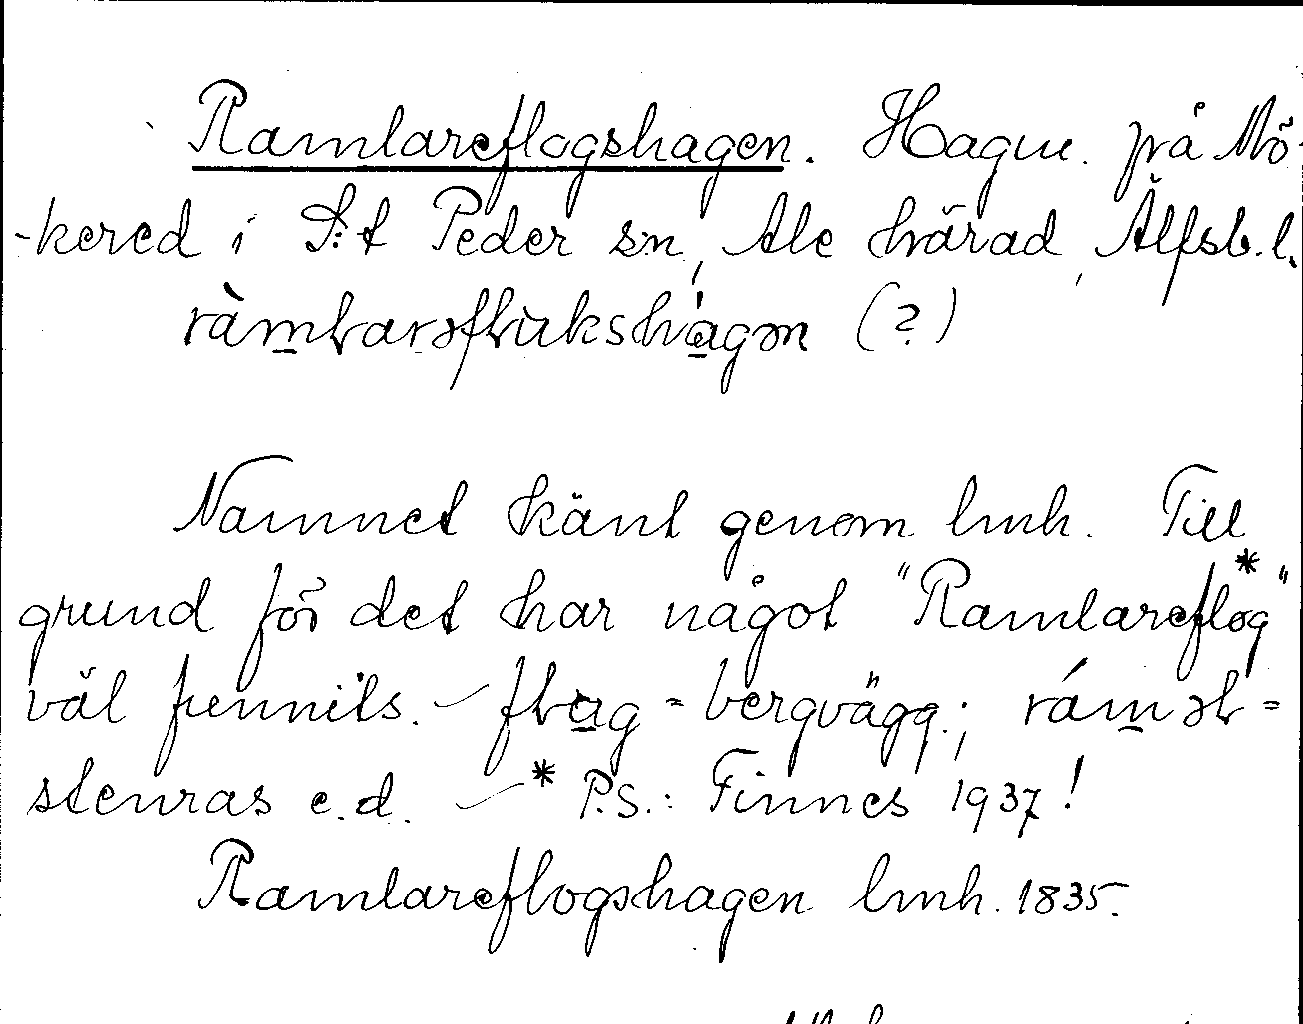 Ramlareflogshagen. Hagm. på Mö-
-kered i S:t Peder sn, Ale härad, Älfsb. l.
(?)
Namnet känt genom lmh. Till
grund för det har något "Ramlareflog*"
väl funnits. – flog = bergvägg; =
stenras e.d. – * P.S.: Finnes 1937!
Ramlareflogshagen lmh. 1835.